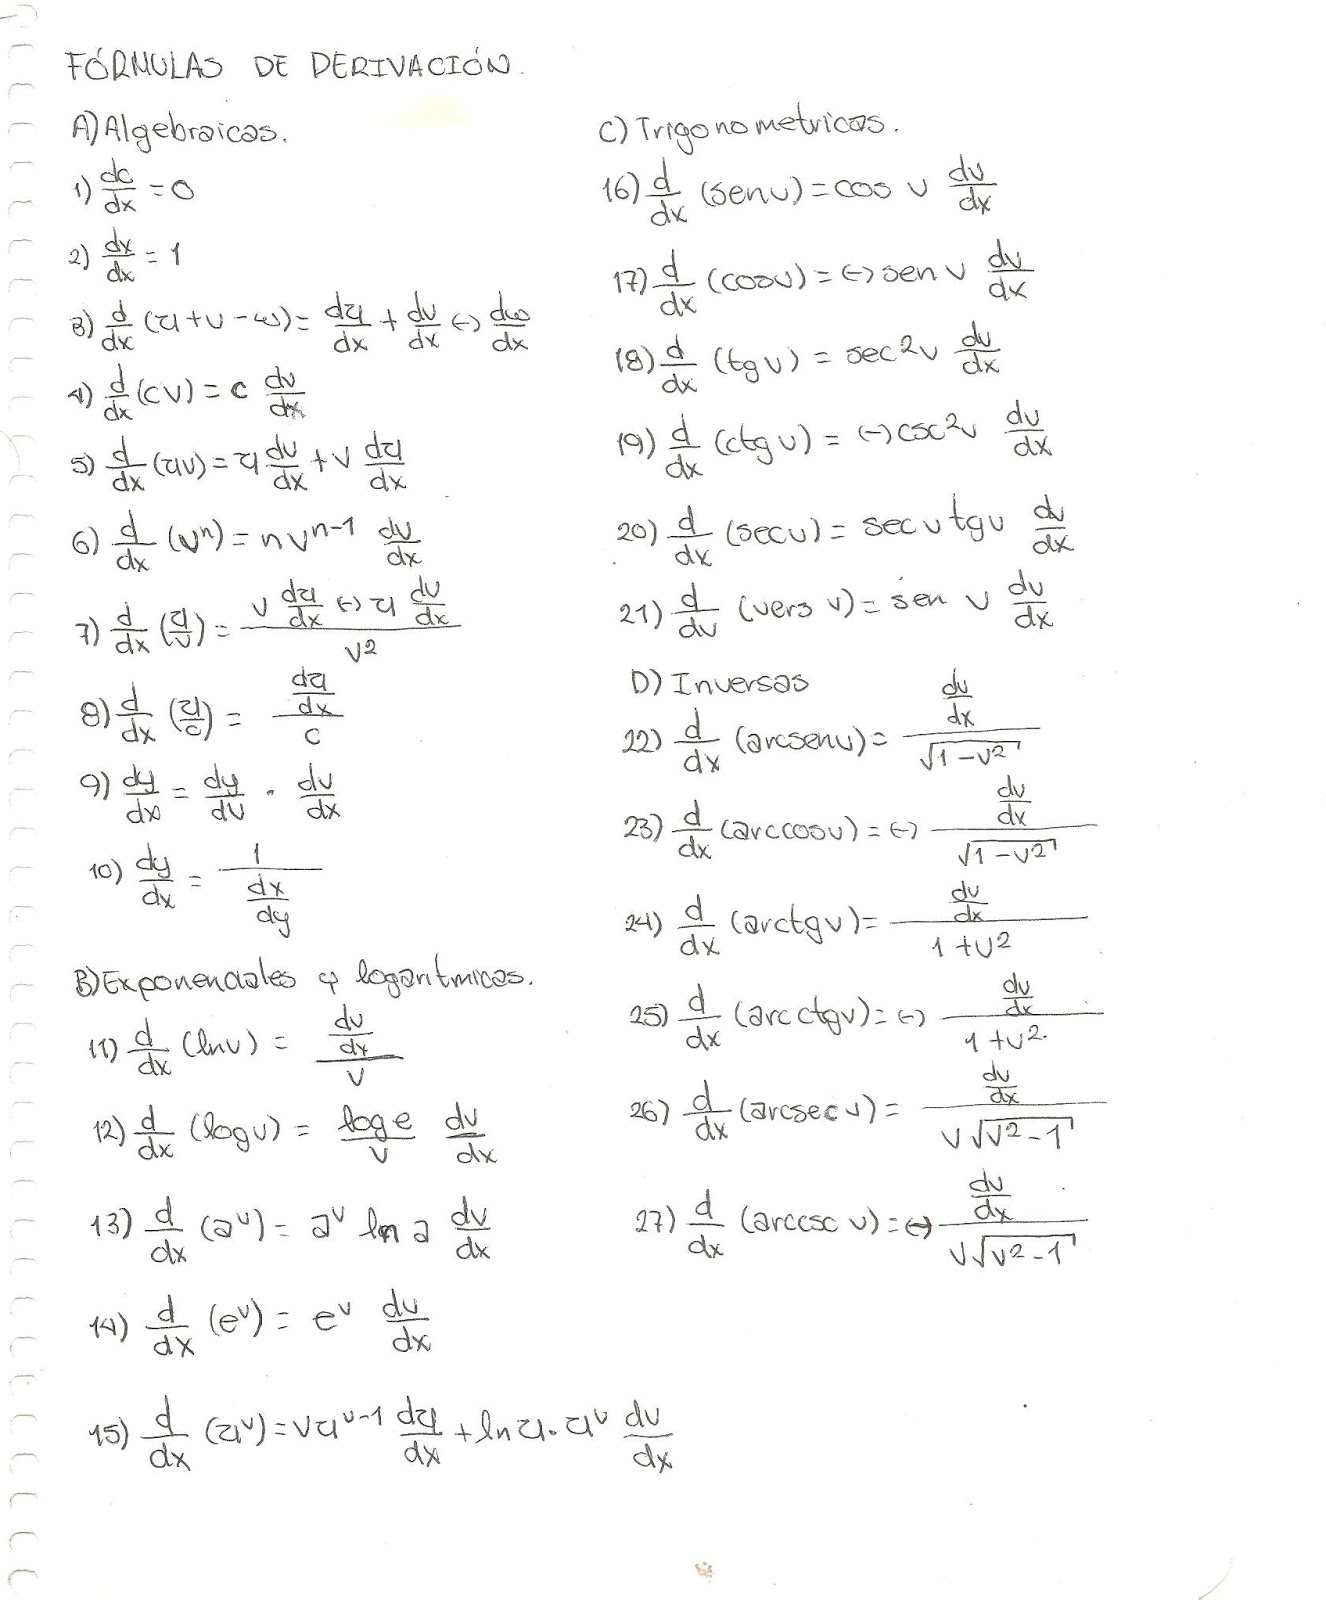 FÓRMULAS DE DERIVACIÓN.
A) Algebraicas.
1) dc/dx = 0
2) dx/dx = 1
3) d/dx (u + v - w) = du/dx + dv/dx (-) dw/dx
4) d/dx (cv) = c dv/dx
5) d/dx (uv) = u dv/dx + v du/dx
6) d/dx (vⁿ) = nvⁿ⁻¹ dv/dx
7) d/dx (u/v) = (v du/dx (-) u dv/dx)/v²
8) d/dx (u/c) = (du/dx)/c
9) dy/dx = dy/dv · dv/dx
10) dy/dx = 1/(dx/dy)
B) Exponenciales y logaritmicas.
11) d/dx (lnv) = (dv/dx)/v
12) d/dx (logv) = log e/v dv/dx
13) d/dx (aᵛ) = aᵛ ln a dv/dx
14) d/dx (eᵛ) = eᵛ dv/dx
15) d/dx (uᵛ) = vuᵛ⁻¹ du/dx + ln u · uᵛ dv/dx
C) Trigonometricas.
16) d/dx (senv) = cos v dv/dx
17) d/dx (cosv) = (-) sen v dv/dx
18) d/dx (tg v) = sec²v dv/dx
19) d/dx (ctg v) = (-) csc²v dv/dx
20) d/dx (secv) = sec v tgv dv/dx
21) d/dv (vers v) = sen v dv/dx
D) Inversas
22) d/dx (arcsenv) = (dv/dx)/√(1-v²)
23) d/dx (arccosv) = (-) (dv/dx)/√(1-v²)
24) d/dx (arctgv) = (dv/dx)/(1+v²)
25) d/dx (arcctgv) = (-) (dv/dx)/(1+v²)
26) d/dx (arcsec v) = (dv/dx)/(v√(v²-1))
27) d/dx (arccsc v) = (-) (dv/dx)/(v√(v²-1))